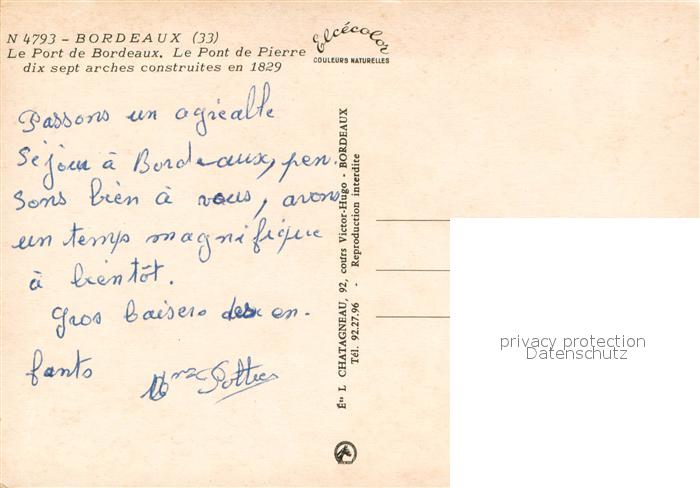 N 4793 - BORDEAUX (33)
Le Port de Bordeaux. Le Pont de Pierre
dix sept arches construites en 1829
Elcécolor
COULEURS NATURELLES
Passons un agréable
séjour à Bordeaux, pen-
sons bien à vous, avons
un temps magnifique
à bientôt.
Gros baisers des en-
fants
Mme Pottier
Éts L CHATAGNEAU, 92, cours Victor-Hugo - BORDEAUX
Tél. 92.27.96 - Reproduction interdite
privacy protection
Datenschutz